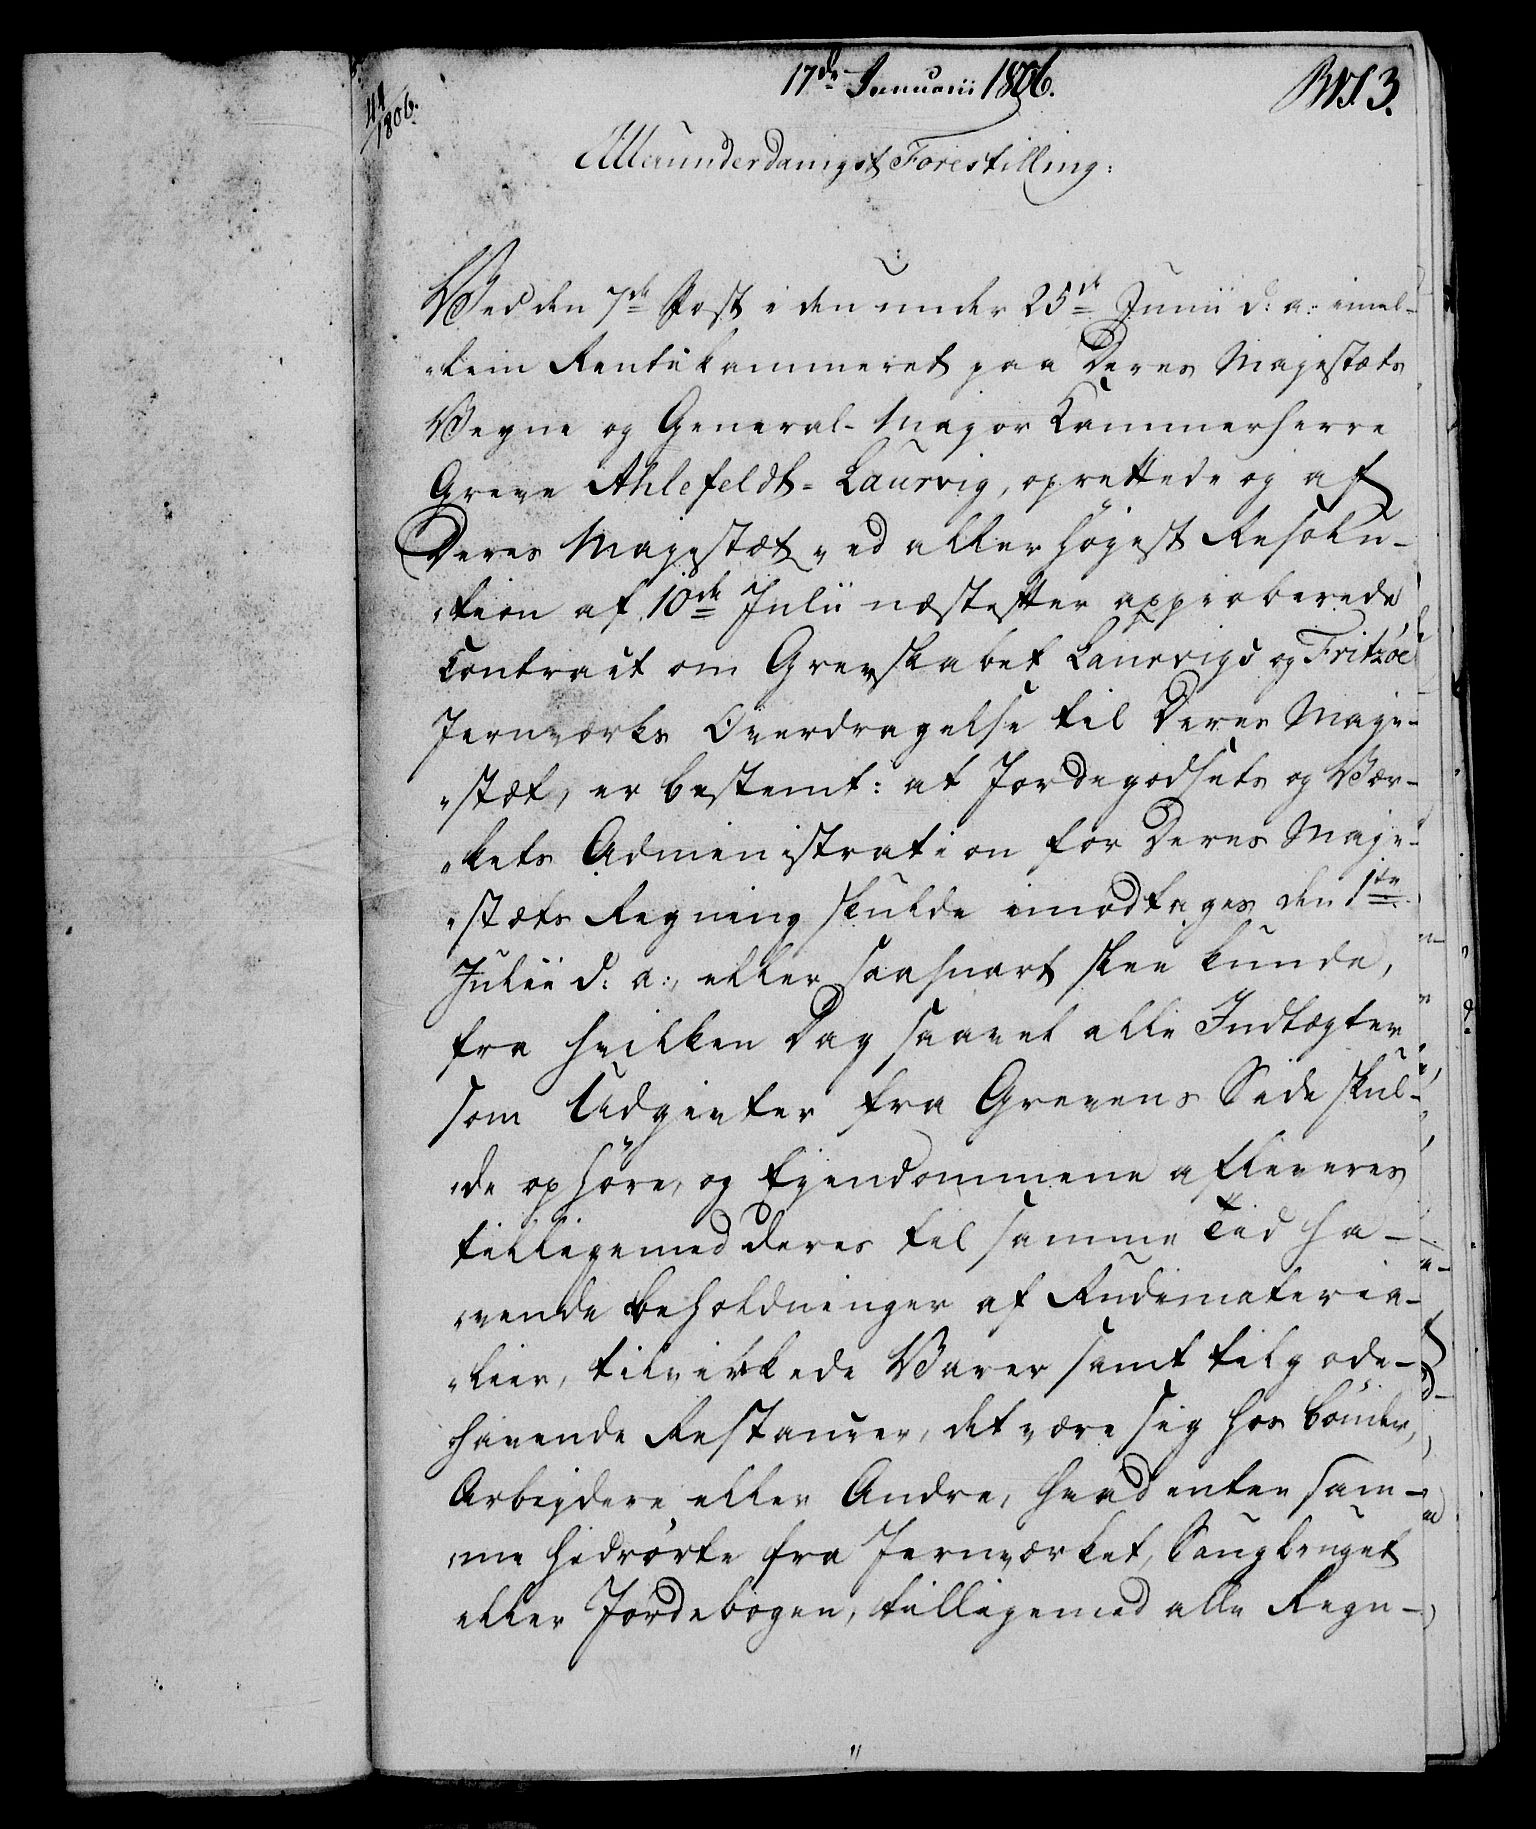 17de Januarii 1806.
44
1806.
Allerunderdanigst Forestilling:
Ved den 7de Post i den under 25de Junii d: a: imel-
"lem Rentekammeret paa Deres Majestæts
Vegne og General-Major Kammerherre
Greve Ahlefeldt-Laurvig, oprettede og af
Deres Majestæt ved allerhöjest Resolu-
"tion af 10de Julii næstefter approberede
Contract om Grevskabet Laurvigs og Fritzöe
Jernværks Overdragelse til Deres Maje-
"stæt, er bestemt: at Jordegodsets og Vær-
"kets Administration for Deres Maje-
"stæts Regning skulde imodtages den 1te
Julii d: a:, eller saasnart skee kunde,
fra hvilken Dag saavel alle Indtægter
som Udgivter fra Grevens Side skul-
"de ophöre, og Ejendommene afleveres
tilligemed deres til samme Tid ha-
"vende Beholdninger af Rudemateria-
"lier, tilvirkede Varer samt tilgode-
"havende Restancer, det være sig hos Bönder,
Arbejdere eller Andre, hvad enten sam-
"me hidrörte fra Jernværket, Saugbruget
eller Jordebogen, tilligemed alle Regn-
"